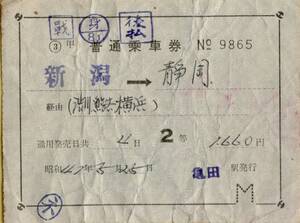 戦 身削 後払
③甲 普通乗車券 № 9865
新潟 → 静岡
経由 (渋川 熊谷 横浜)
通用発売日共 4日 2等 1660円
昭和41年5月25日 亀田 駅発行
M